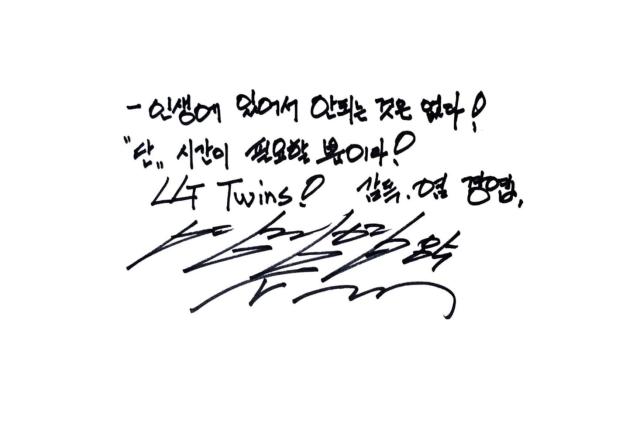 - 인생에 있어서 안되는 것은 없다!
"단" 시간이 필요할 뿐이다!
LG Twins! 감독. 염경엽.